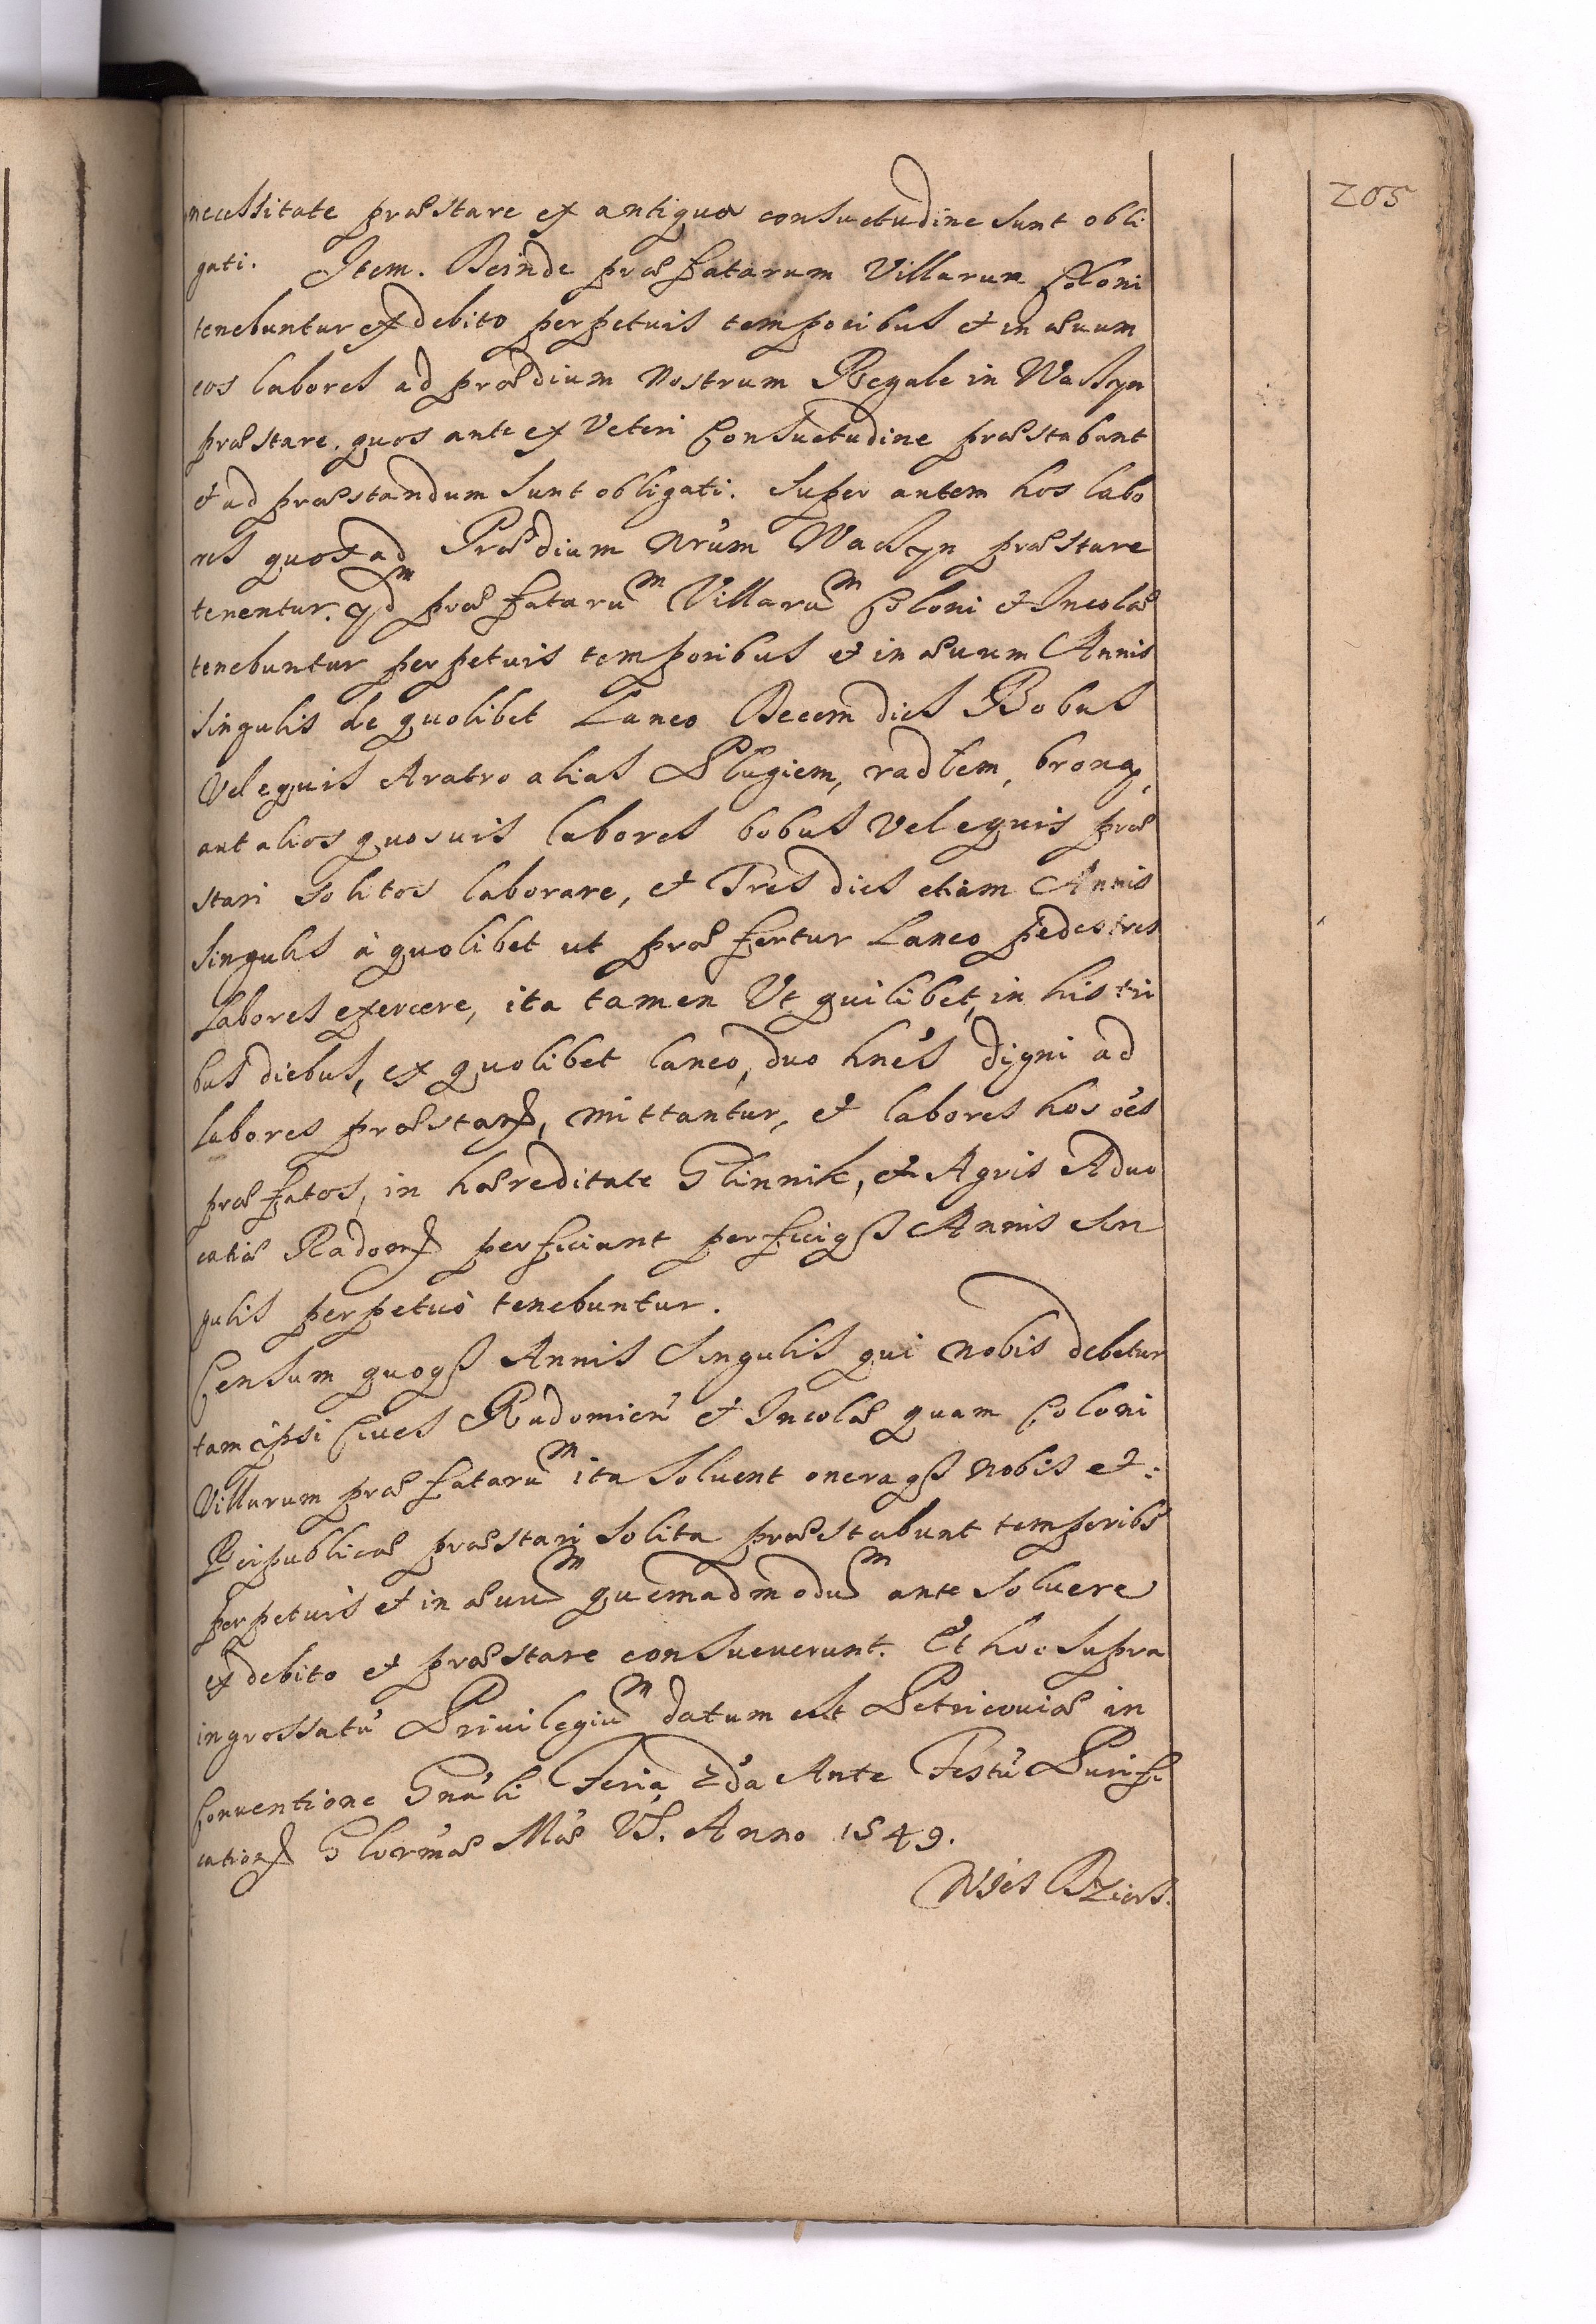 205
necessitate præstare ex antiqua consuetudine sunt obli
gati. Item. Deinde præfatarum Villarum Coloni
tenebuntur ex debito perpetuis temporibus et in æuum
eos labores ad prædium nostrum Regale in Wacsyn
præstare, quos ante ex Veteri Consuetudine præstabant
et ad præstandum sunt obligati. Super autem hos labo
res quos ad Prædium nrũm Wacsyn præstare
tenentur. præfataru^m Villaru^m Coloni et Incolæ
tenebuntur perpetuis temporibus et in æuum Annis
singulis de quolibet Laneo Decem dies Bobus
Vel equis Aratro alias Pługiem, radłem, broną,
aut alios quosuis labores bobus vel equis præ
stari solitos laborare, et Tres dies etiam Annis
singulis à quolibet ut præfertur Laneo pedestres
Labores exercere, ita tamen Ut quilibet, in his tri
bus diebus, ex quolibet laneo, duo hnẽs digni ad
labores præstan, mittantur, et labores hos oẽs
præfatos, in hæreditate Glinnik, et Agris Aduo
catiæ Radom perficiant perficiqß Annis Sin
gulis perpetuò tenebuntur.
Censum quoqß Annis Singulis qui nobis debetur
tam ipsi Ciues Radomień et Incolæ quam Coloni
Villarum præfataru^m ita soluent oneraqß nobis et
Reipublicæ præstari solita præstabunt temporibs
perpetuis et in æuu^m quemadmodu^m ante soluere
ex debito et præstare consueuerunt. Et hoc supra
ingrossatũ Priuilegiu^m datum est Petricouiæ in
Conuentione Gnãli Feria 2da Ante Festũ Purifi
cation Glormæ Mæ VS. Anno 1549.